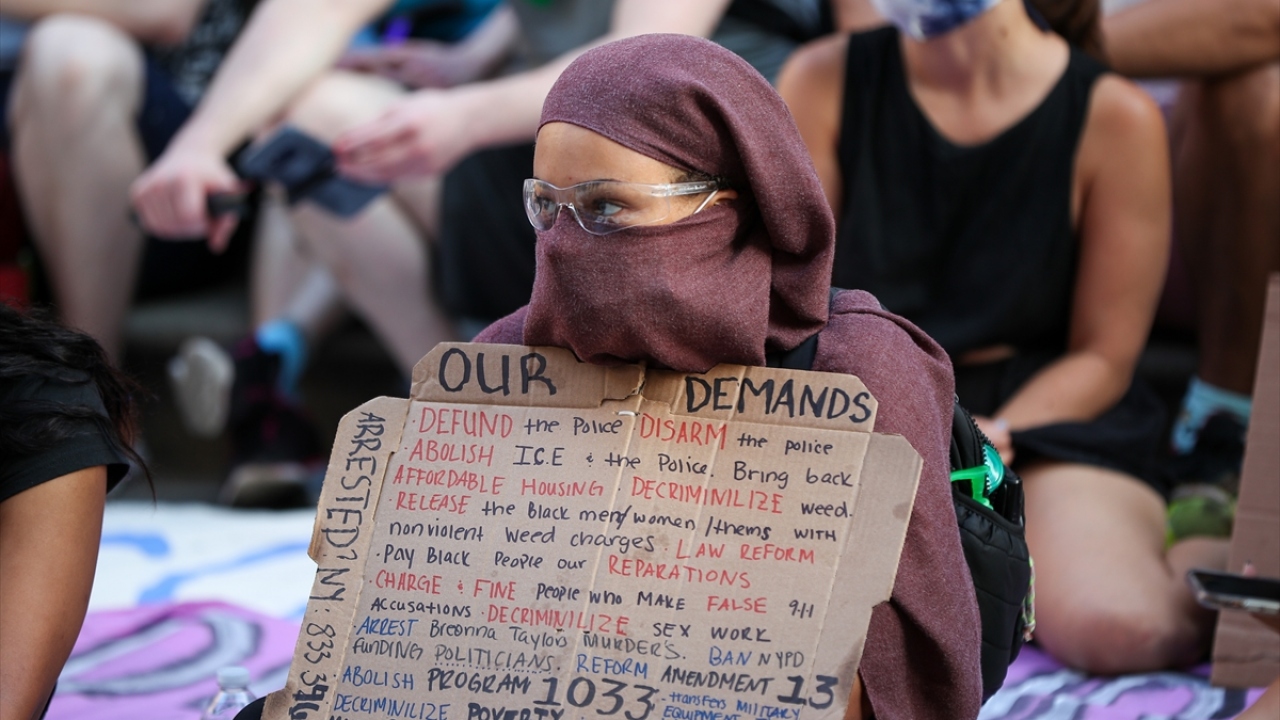 OUR DEMANDS
· DEFUND the Police · DISARM the police
· ABOLISH I.C.E & the Police. Bring back
AFFORDABLE HOUSING · DECRIMINILIZE weed.
· RELEASE the Black men/women/thems WITH
nonviolent weed charges · LAW REFORM
· PAY Black People our REPARATIONS
· CHARGE & FINE People who MAKE FALSE 911
ACCUSATIONS · DECRIMINILIZE SEX WORK
· ARREST Breonna Taylors MURDER'S. BAN NYPD
funding POLITICIANS. REFORM AMENDMENT 13
· ABOLISH PROGRAM 1033 transfers MILITARY
DECRIMINILIZE POVERTY EQUIPMENT
ARRESTED? NY: 833 346